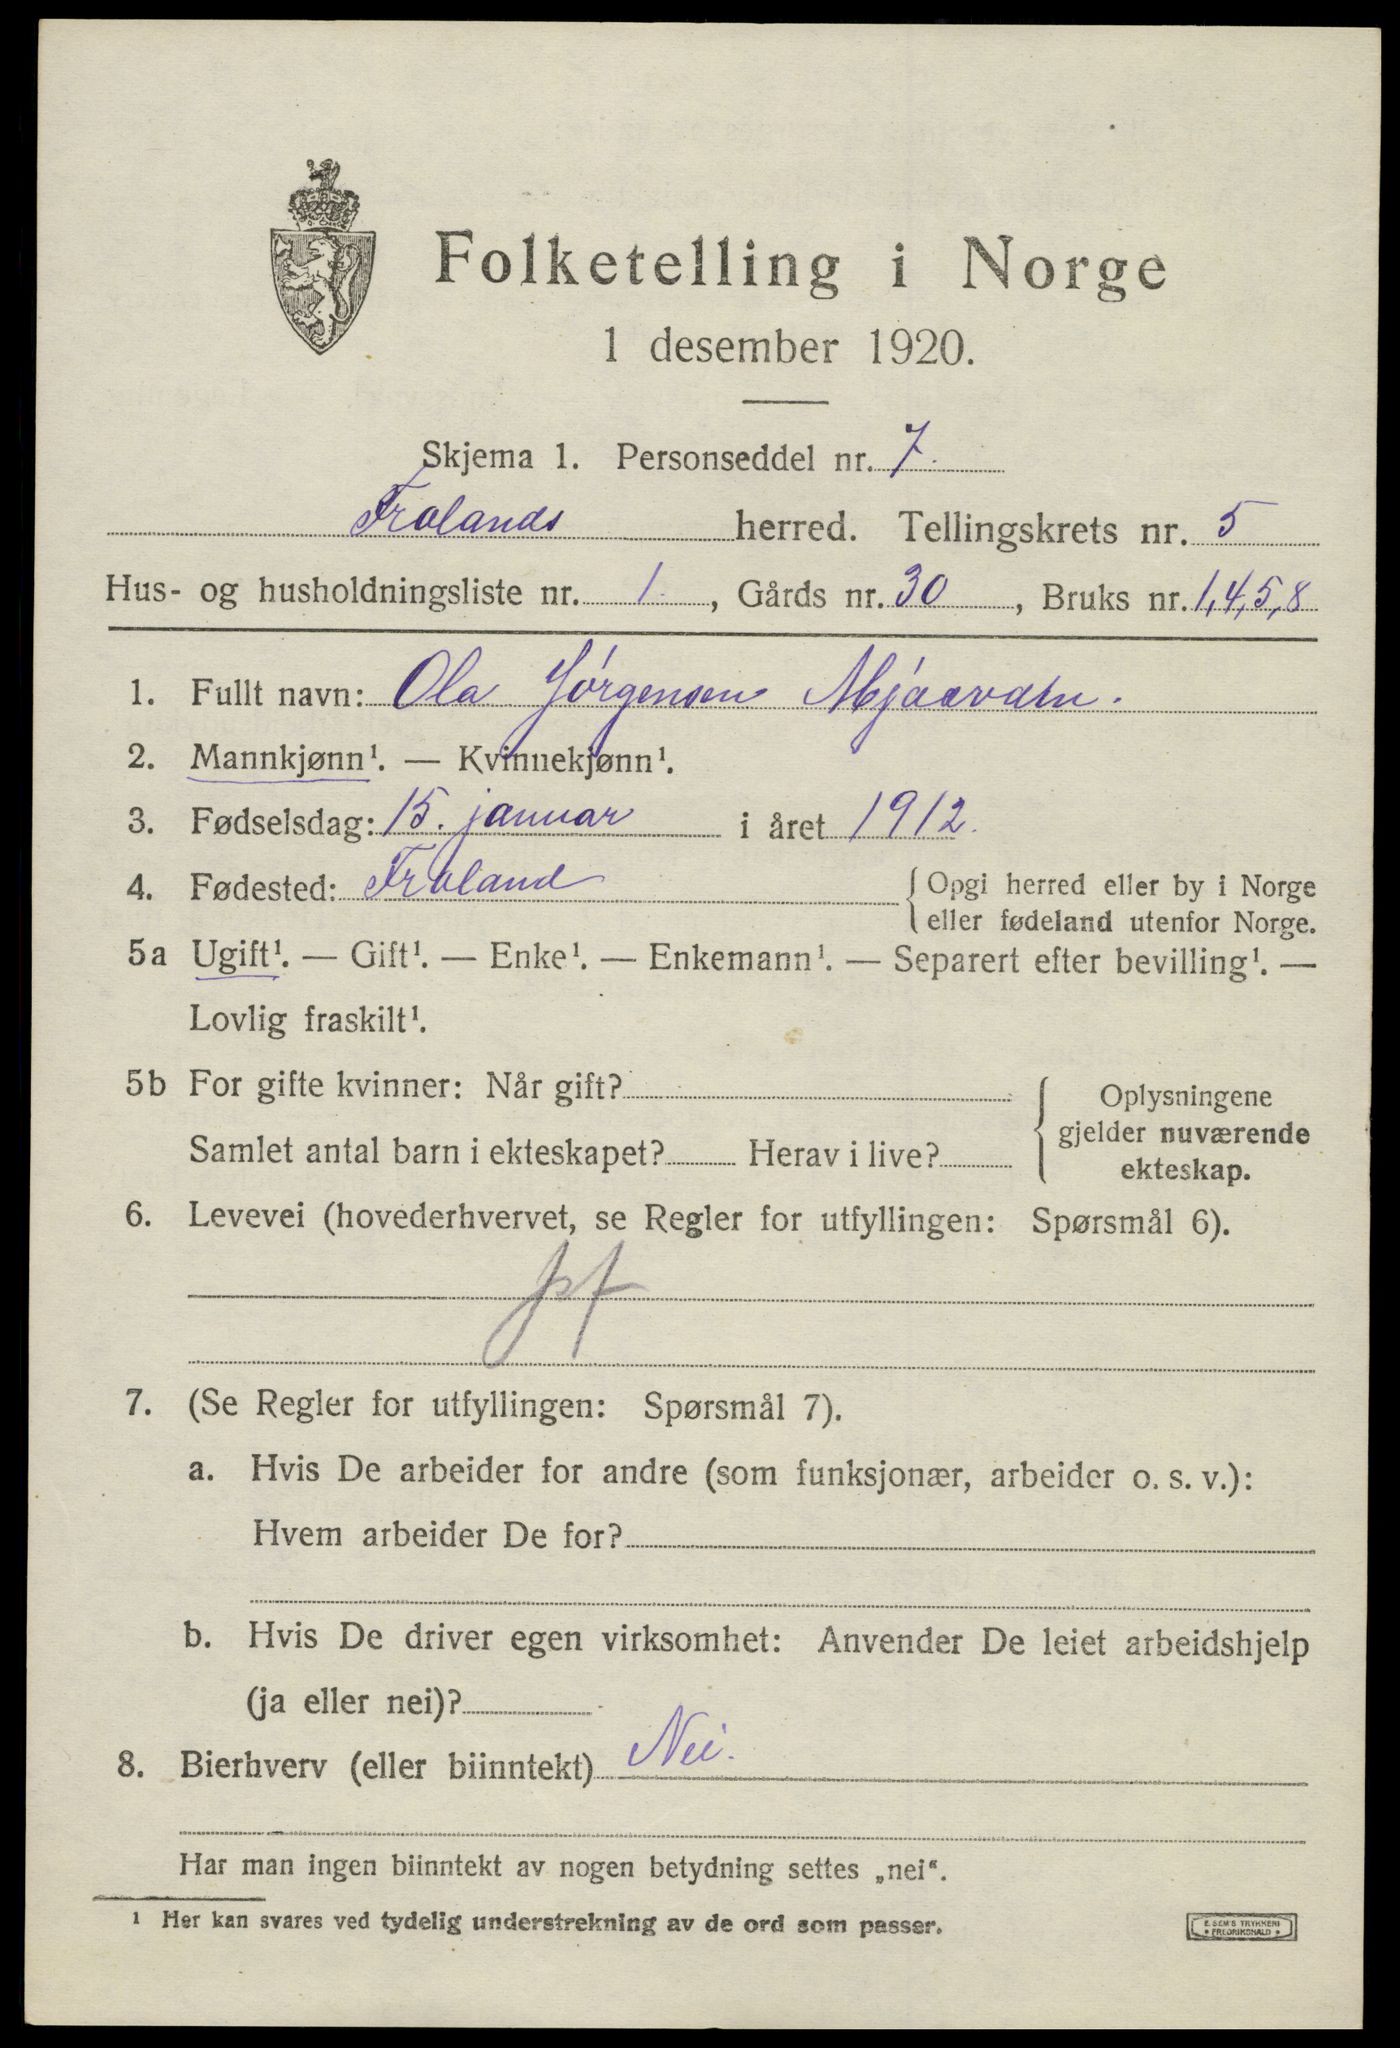 Folketelling i Norge
1 desember 1920.
Skjema 1. Personseddel nr. 7.
Frolands herred. Tellingskrets nr. 5
Hus- og husholdningsliste nr. 1., Gårds nr. 30, Bruks nr. 1,4,5,8
1. Fullt navn: Ola Jörgensen Mjaavatn.
2. Mannkjønn¹. — Kvinnekjønn¹.
3. Fødselsdag: 15. januar i året 1912.
4. Fødested: Froland { Opgi herred eller by i Norge
eller fødeland utenfor Norge.
5a Ugift¹. — Gift¹. — Enke¹. — Enkemann¹. — Separert efter bevilling¹. —
Lovlig fraskilt¹.
5b For gifte kvinner: Når gift?
Samlet antal barn i ekteskapet? Herav i live?
Oplysningene
gjelder nuværende
ekteskap.
6. Levevei (hovederhvervet, se Regler for utfyllingen: Spørsmål 6).
7. (Se Regler for utfyllingen: Spørsmål 7).
a. Hvis De arbeider for andre (som funksjonær, arbeider o. s. v.):
Hvem arbeider De for?
b. Hvis De driver egen virksomhet: Anvender De leiet arbeidshjelp
(ja eller nei)?
8. Bierhverv (eller biinntekt) Nei.
Har man ingen biinntekt av nogen betydning settes „nei“.
¹ Her kan svares ved tydelig understrekning av de ord som passer.
E. SEM'S TRYKKERI
• FREDRIKSHALD •